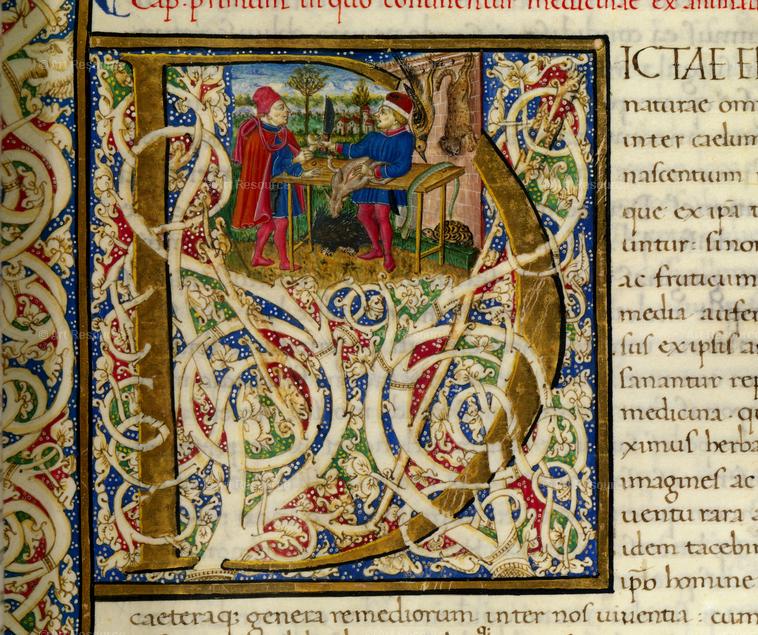 Cap. primum in quo continentur medicinae ex animali
D
ICTAE E
naturae om
inter caelum
nascentium
que ex ipā t
untur: sinon
ac fruticum
media aufer
sus ex ipsis a
sanantur rep
medicina. qu
ximus herba
imagines ac
uentu rara
idem tacebi
ipō homine
caeteraq; genera remediorum inter nos uiuentia: cum